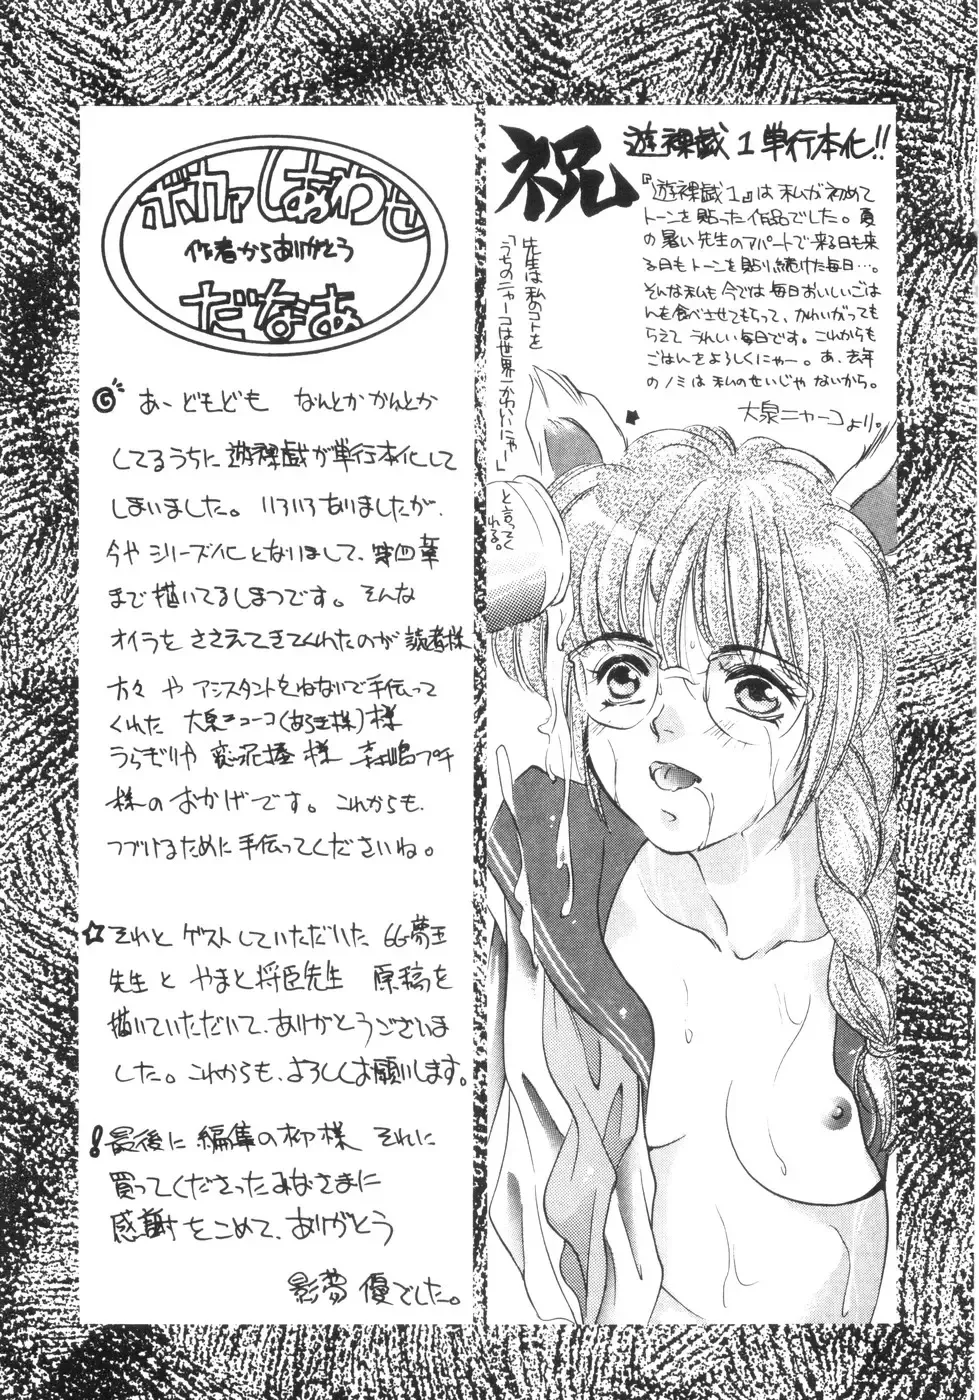 祝
遊裸戯1単行本化!!
『遊裸戯1』は私が初めて
トーンを貼った作品でした。夏
の暑い先生のアパートで来る日も来
る日もトーンを貼り続けた毎日…。
そんな私も今では毎日おいしいごは
んを食べさせてもらって、かわいがっても
らえてうれしい毎日です。これからも
ごはんをよろしくにゃー。あ、去年
のノミは私のせいじゃないから。
大泉ニャーコより。
先生は私のコトを
「うちのニャーコは世界一かわいいにゃー」
と言ってく
れる。
ボカァしあわせ
作者からありがとう
だなあ
あーどもども なんとかかんとか
してるうちに遊裸戯が単行本化して
しまいました。いろいろありましたが、
今やシリーズ化となりまして、第四章
まで描いてるしまつです。そんな
オイラをささえてきてくれたのが読者様
方々やアシスタントをねないで手伝って
くれた 大泉ニャーコ(あろま様)様
うらぎりや 様 森嶋プチ
様のおかげです。これからも、
つづけるために手伝ってくださいね。
☆それとゲストしていただいた GG夢王
先生とやまと将臣先生 原稿を
描いていただいて、ありがとうございま
した。これからも、よろしくお願いします。
!最後に編集の柳様 それに
買ってくださったみなさまに
感謝をこめて、ありがとう
影夢優でした。